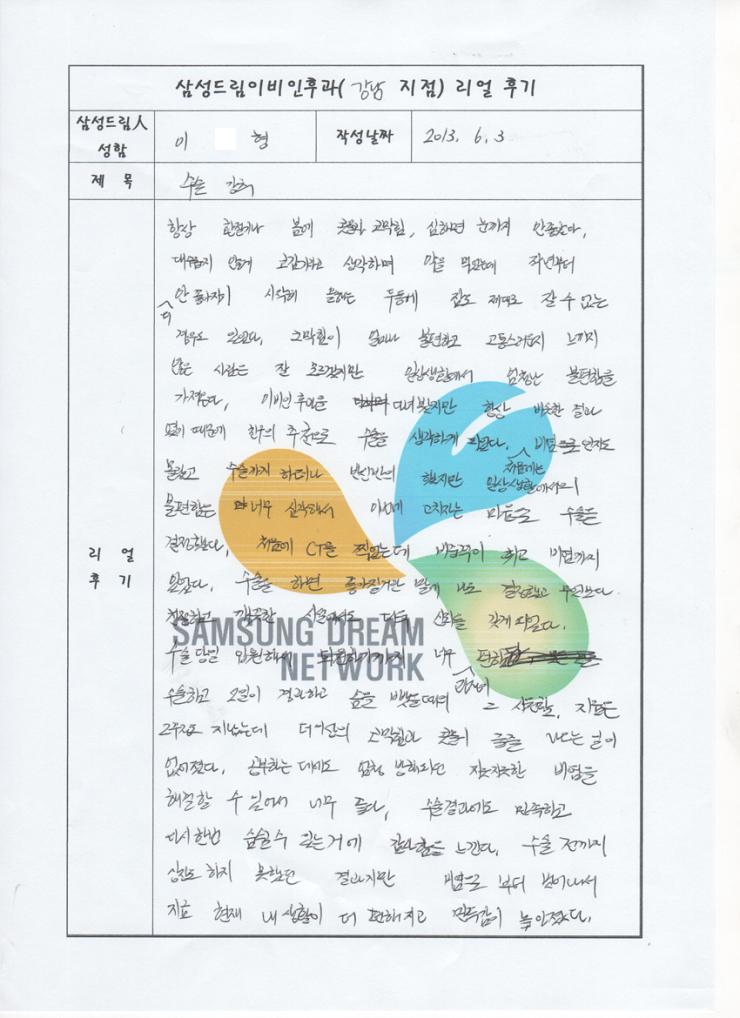 삼성드림이비인후과( 강남 지점) 리얼 후기
삼성드림人 성함
이 형
작성날짜
2013. 6. 3
제 목
수술 강추
리 얼
후 기
항상 환절기나 봄에 콧물과 코막힘, 심하면 눈까지 안좋았다,
대수롭지 않게 코감기라고 생각하며 약을 먹었는데 작년부터
더 안 좋아지기 시작해 올해는 두통에 잠도 제대로 잘 수 없는
경우도 있었다, 코막힘이 얼마나 불편하고 고통스러운지 느끼지
않은 사람은 잘 모르겠지만 일상생활에서 엄청난 불편함을
가져온다, 이비인후과를 다녀봤지만 항상 비슷한 결과
였기 때문에 친구의 추천으로 수술을 생각하게 되었다. 비염 인지도
몰랐고 수술까지 하려니 반신반의 했지만 저에게는 일상생활에서의
불편함은 너무 심각해서 이번에 고치자는 마음으로 수술을
결정했다, 처음에 CT를 찍었는데 비중격이 휘고 비염까지
있었다. 수술을 하면
친절하고 깨끗한 시설에서도 다시 신뢰를 갖게 되었다.
SAMSUNG DREAM
NETWORK
수술 당일 입원해서 퇴원하기까지 너무 편하
수술하고 2일이 경과하고 솜을 뺏을때의 그 시원함, 지금은
2주정도 지났는데 더이상의 코막힘과 콧물이 줄줄 나오는 일이
없어졌다. 공부하는 데에도 엄청 방해되던 지긋지긋한 비염을
해결할 수 있어서 너무 좋다, 수술결과에도 만족하고
다시한번 숨쉴수 있는거에 감사함을 느낀다. 수술 전까지
상상도 하지 못했던 결과지만 비염으로 부터 벗어나서
지금 현재 내 생활이 더 편해지고 만족감이 높아졌다.